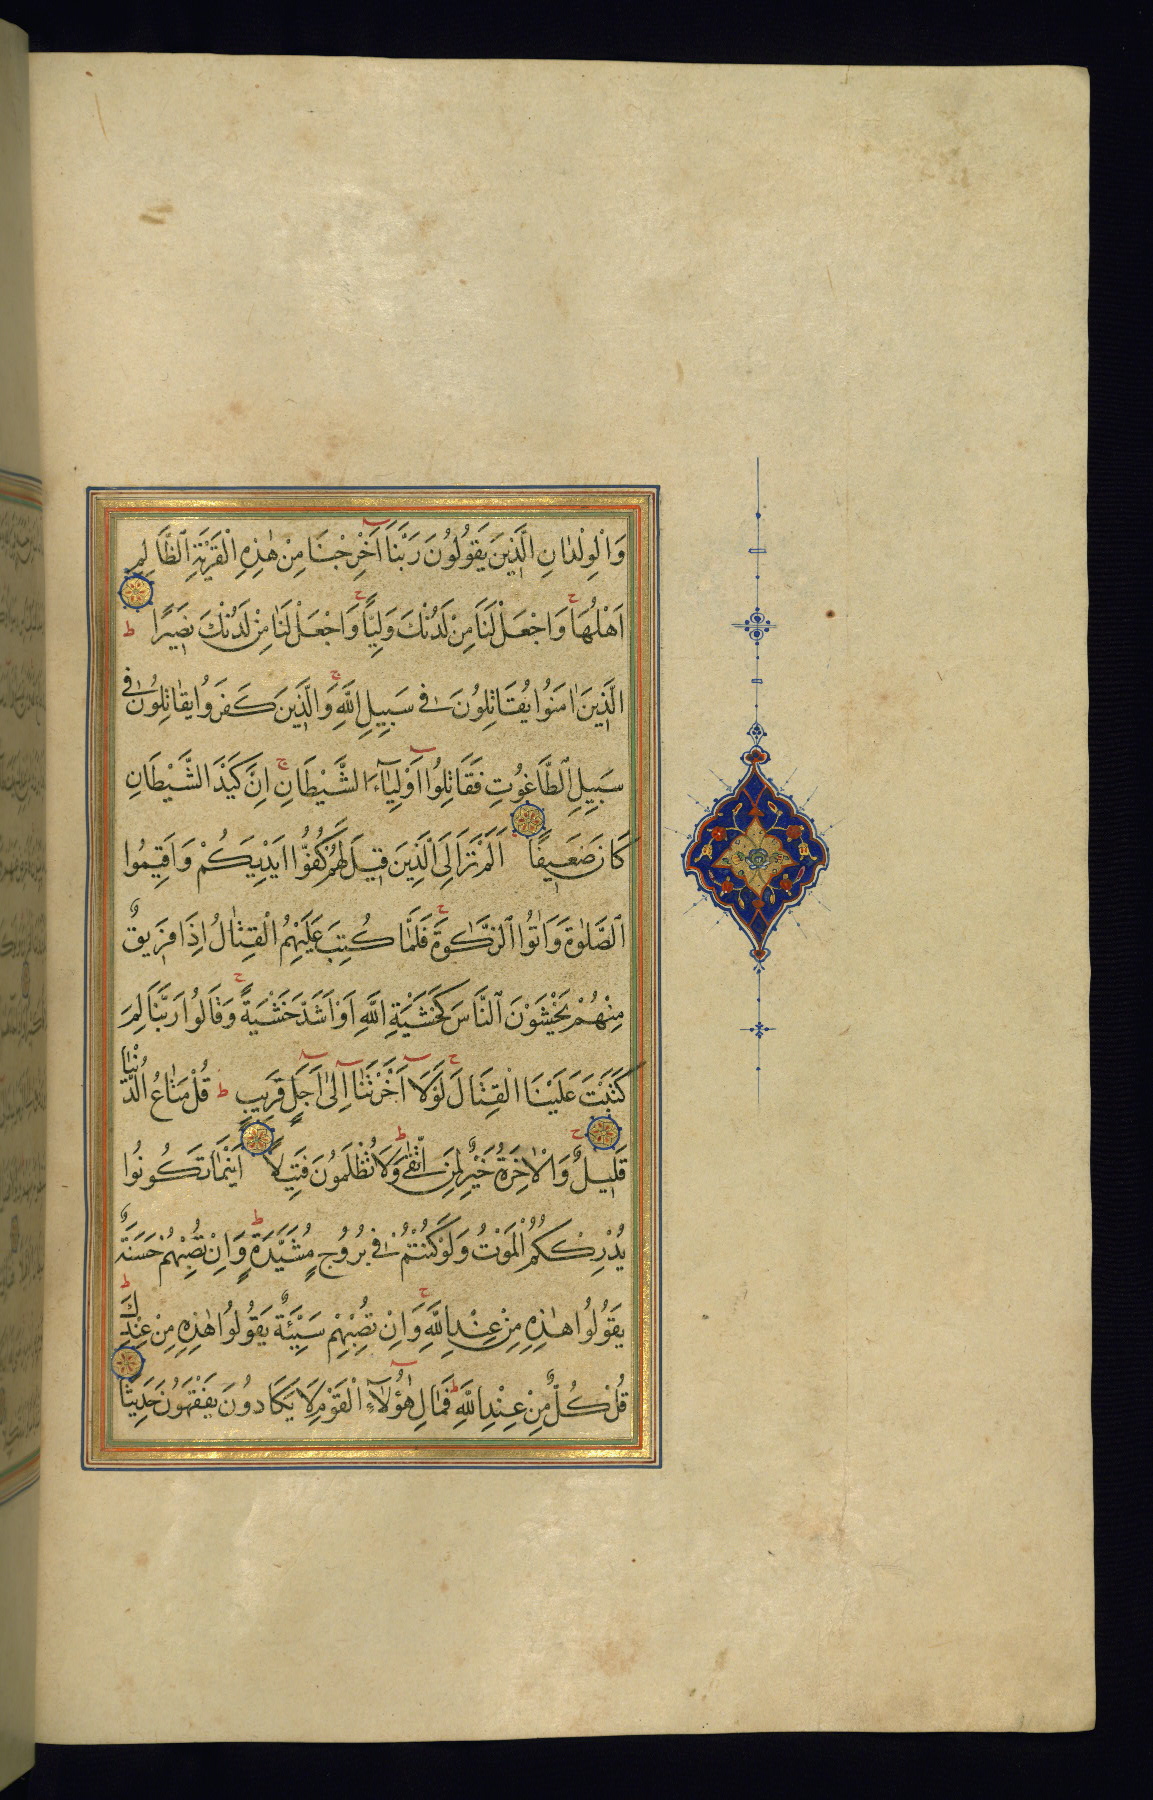 وَالْوِلْدٰانِ الَّذِينَ يَقُولُونَ رَبَّنَا اَخْرِجْنَا مِنْ هٰذِهِ الْقَرْيَةِ الظَّالِمِ
اَهْلُهَا وَاجْعَلْ لَنَا مِنْ لَدُنْكَ وَلِيًّا وَاجْعَلْ لَنَا مِنْ لَدُنْكَ نَصِيرًا
الَّذِينَ اٰمَنُوا يُقَاتِلُونَ فِي سَبِيلِ اللَّهِ وَالَّذِينَ كَفَرُوا يُقٰاتِلُونَ فِي
سَبِيلِ الطَّاغُوتِ فَقَاتِلُوا اَوْلِيٰاءَ الشَّيْطَانِ اِنَّ كَيْدَ الشَّيْطَانِ
كَانَ ضَعِيفًا اَلَمْ تَرَ اِلَى الَّذِينَ قِيلَ لَهُمْ كُفُّوا اَيْدِيَكُمْ وَاَقِيمُوا
الصَّلٰوةَ وَاٰتُوا الزَّكٰوةَ فَلَمَّا كُتِبَ عَلَيْهِمُ الْقِتٰالُ اِذَا فَرِيقٌ
مِنْهُمْ يَخْشَوْنَ النَّاسَ كَخَشْيَةِ اللَّهِ اَوْ اَشَدَّ خَشْيَةً وَقَالُوا رَبَّنَا لِمَ
كَتَبْتَ عَلَيْنَا الْقِتَالَ لَوْلَا اَخَّرْتَنٰا اِلٰى اَجَلٍ قَرِيبٍ قُلْ مَتٰاعُ الدُّنْيٰا
قَلِيلٌ وَالْاٰخِرَةُ خَيْرٌ لِمَنِ اتَّقٰى وَلَا تُظْلَمُونَ فَتِيلًا اَيْنَمٰا تَكُونُوا
يُدْرِكْكُمُ الْمَوْتُ وَلَوْ كُنْتُمْ فِي بُرُوجٍ مُشَيَّدَةٍ وَاِنْ تُصِبْهُمْ حَسَنَةٌ
يَقُولُوا هٰذِهِ مِنْ عِنْدِ اللَّهِ وَاِنْ تُصِبْهُمْ سَيِّئَةٌ يَقُولُوا هٰذِهِ مِنْ عِنْدِكَ
قُلْ كُلٌّ مِنْ عِنْدِ اللَّهِ فَمٰالِ هٰؤُلٰاءِ الْقَوْمِ لَا يَكَادُونَ يَفْقَهُونَ حَدِيثًا